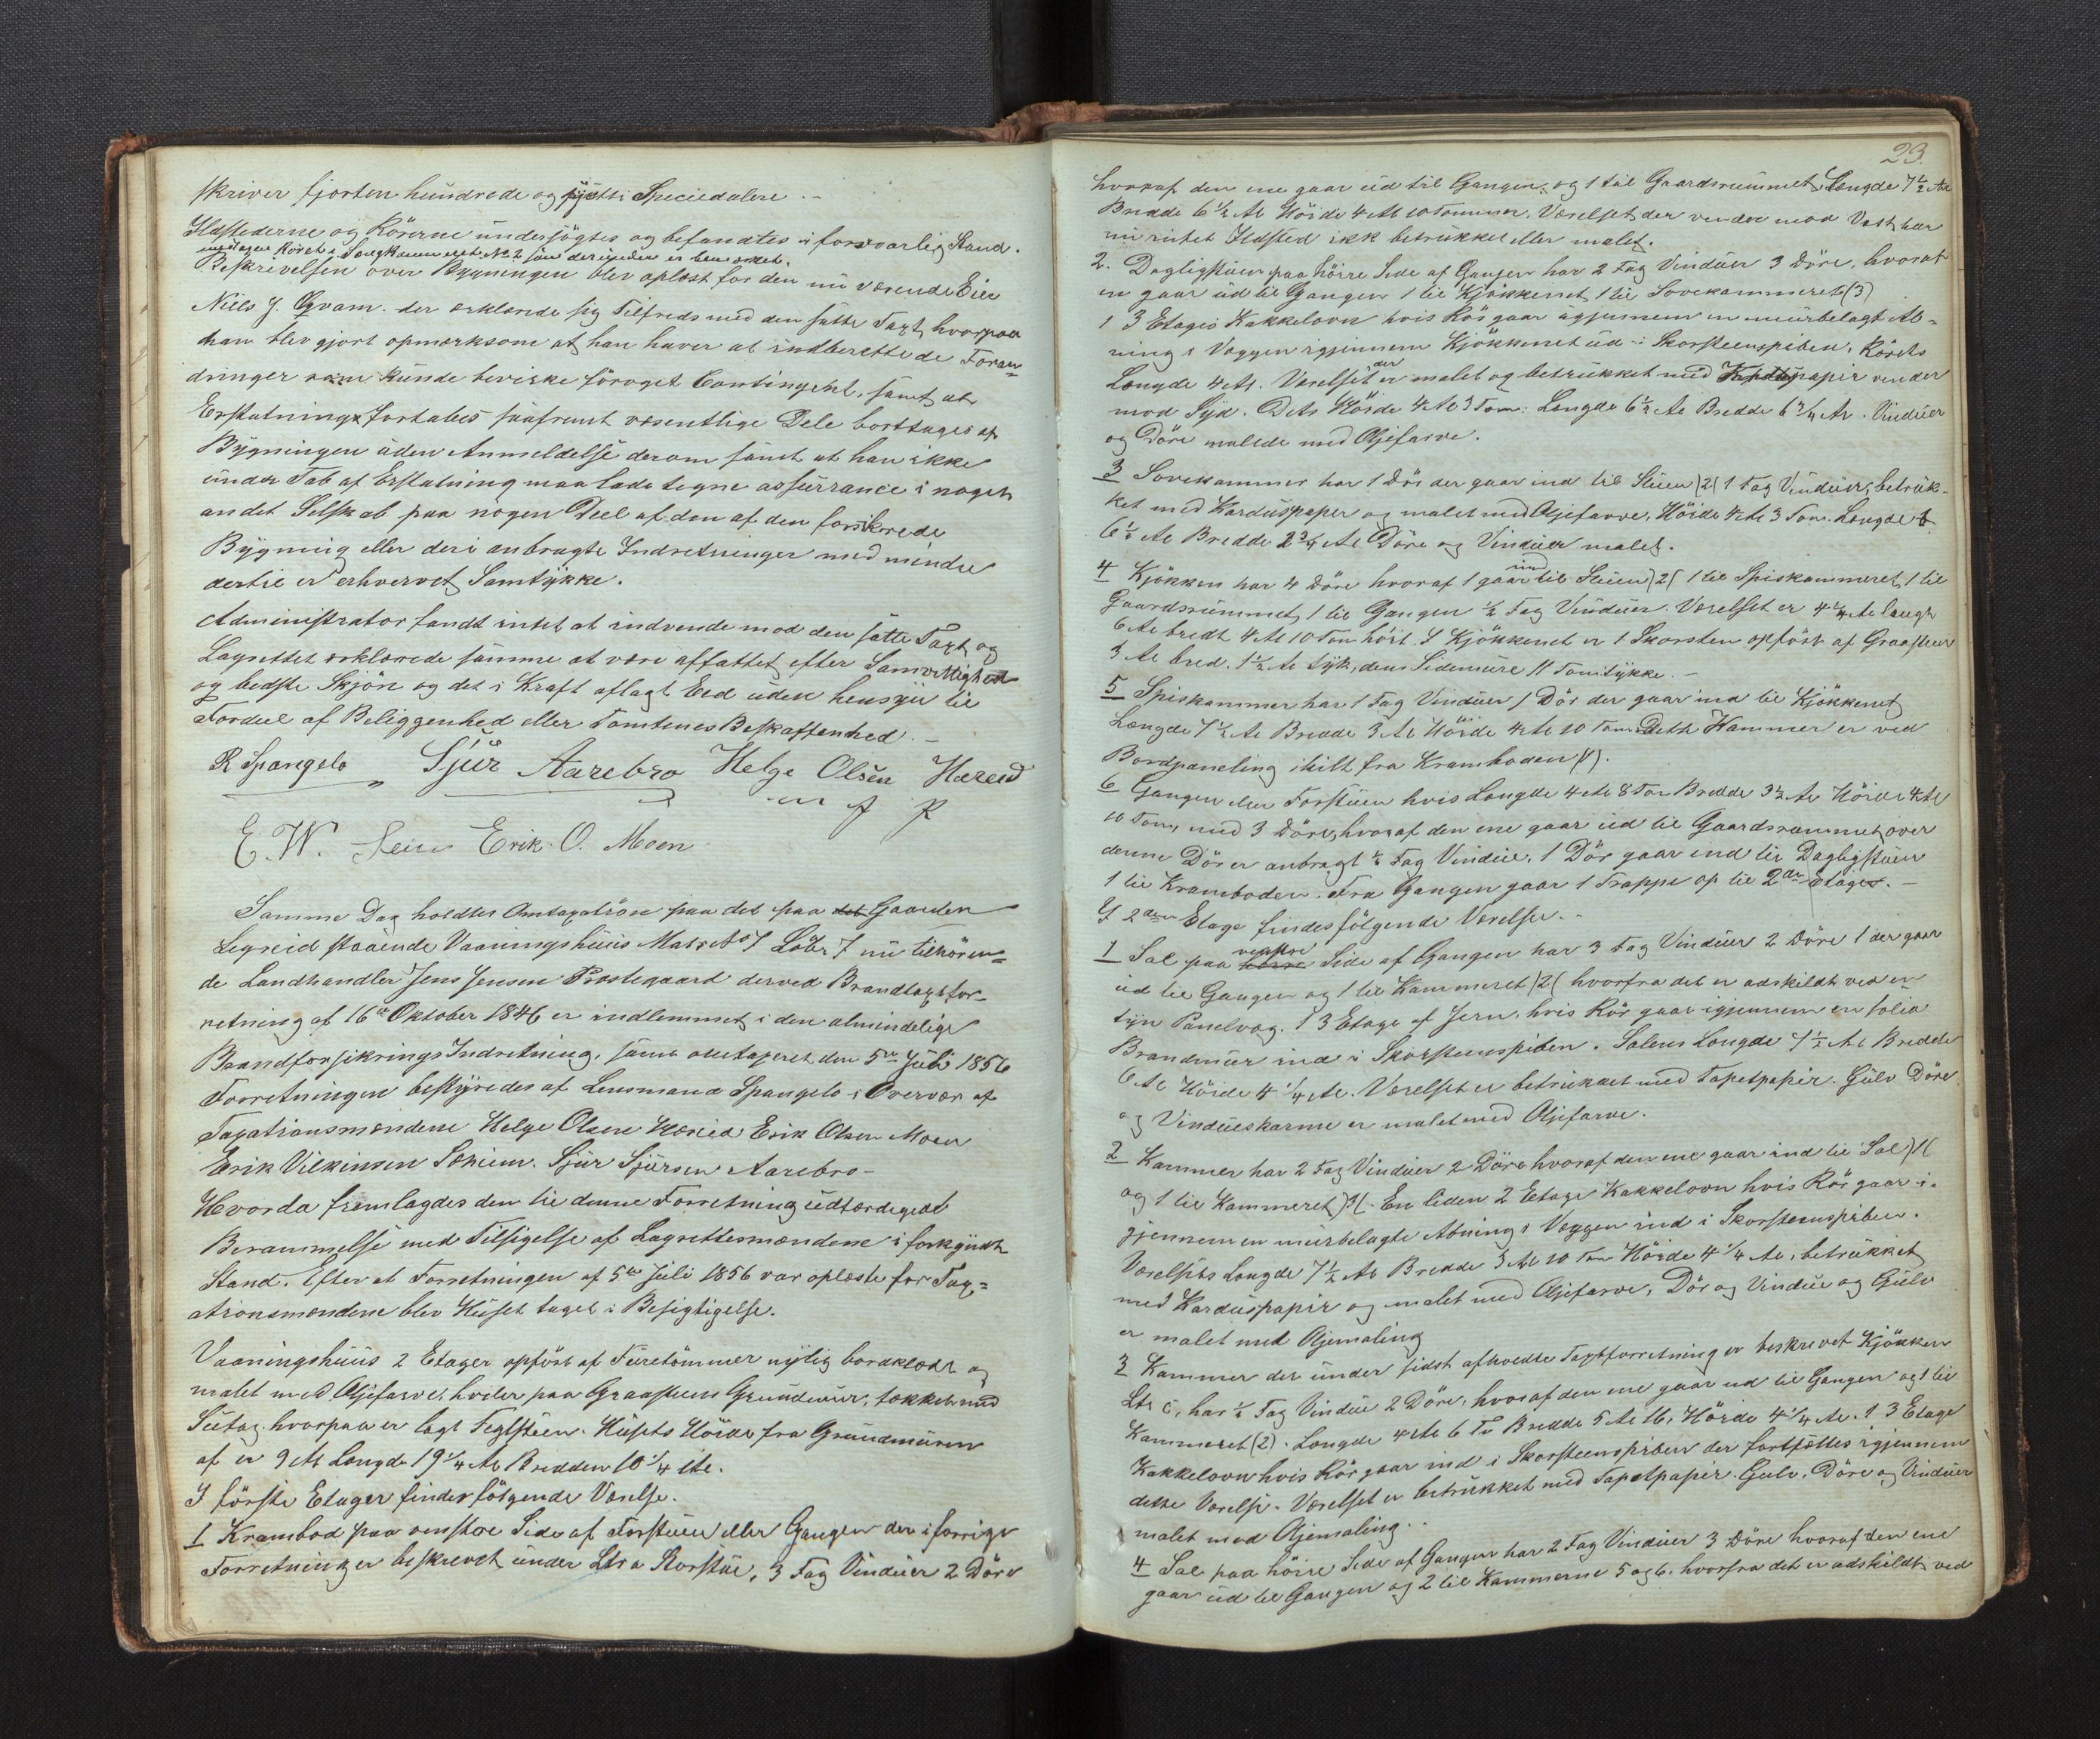 skriver fjorten hundrede og syvti Speciedalere. -
Ildstederne og Rörerne undersögtes og befandtes i forsvarlig Stand.
undtagen Röret i Sengkammeret No 2 som derinden er bemærket.
Beskrivelsen over Bygningen blev oplæst for den nu værende Eier
Niels J. Qvam. der erklærede sig tilfreds med den satte Taxt, hvorpaa
han blev gjort opmærksom at han haver at indberette de Foran-
dringer som kunde bevirke föröget Contingent, samt at
Erstatning fortabes saafremt væsentlige Dele borttages af
Bygningen uden Anmeldelse derom samt at han ikke
under Tab af Erstatning maa lade tegne assurrance i noget
andet Selskab paa nogen Deel af den af den forsikrede
Bygning eller deri anbragte Indretninger med mindre
dertil er erhvervet Samtykke.
Administrator fandt intet at indvende mod den satte Taxt og
Lagrettet erklærede samme at være affattet efter Samvittighed
og bedste Skjön og det i Kraft aflagt Eed uden hensyn til
Fordeel af Beliggenhed eller Tomtenes Beskaffenhed. -
R Spangelo Sjur Aarebro Helge Olsen Hæreid
m f P
E. W. Seim Erik O. Moen
Samme Dag holdtes Omtaxation paa det paa det Gaarden
Legreid staaende Vaaningshuus Matr No 7 Löbr 7 nu tilhören-
de Landhandler Jens Jensen Præstegaard derved Brandtaxtfor-
retning af 16de Oktober 1846 er indlemmet i den almindelige
Brandforsikrings Indretning, samt omtaxeret den 5te Juli 1856
Forretningen bestyredes af Lensmand Spangelo i Overvær af
Taxationsmændene Helge Olsen Hæreid Erik Olsen Moen
Erik Vilkinsen Sæium. Sjur Sjursen Aarebro -
Hvorda fremlagdes den til denne Forretning udfærdigede
Berammelse med Tilsigelse af Lagrettesmændene i forkyndt
Stand. Efter at Forretningen af 5te Juli 1856 var oplæste for Tax-
ationsmændene blev Huset taget i Besigtigelse.
Vaaningshuus 2 Etager opfört af Furetömmer nylig bordklædt og
malet med Oljefarve, hviler paa Graasteens Grundmur, tækket med
Sutag hvorpaa er lagt Teglsteen. Husets Höide fra Grundmuren
af er 9 Al Længde 19 1/4 Al Bredden 10 1/4 Al.
I förste Etager findes fölgende Værelse.
1 Krambod paa venstre Side af Forstuen eller Gangen der i forrige
Forretning er beskrevet under Ltr a Storstue, 3 Fag Vinduer 2 Döre
23.
hvoraf den ene gaar ud til Gangen, og 1 til Gaardsrummet Længde 7 1/2 Al
Bredde 6 1/2 Al Höide 4 Al 10 Tommer. Værelset der vender mod Vest har
nu intet Ildsted ikk betrukket eller malet.
2. Dagligstuen paa höire Side af Gangen har 2 Fag Vinduer 3 Döre, hvoraf
en gaar ud til Gangen 1 til Kjökkenet, 1 til Sovekammeret (3)
1 3 Etages Kakkelovn hvis Rör gaar igjennem en muurbelagt Ab-
ning i Væggen igjennem Kjökkenet ud i Skorsteenspiben, Rörets
Længde 4 Al. Værelset der er malet og betrukket med Tapetpapir vender
mod Syd. Dets Höide 4 Al 3 Tom: Længde 6 1/2 Al Bredde 6 3/4 Al. Vinduer
og Döre malede med Oljefarve.
3 Sovekammer har 1 Dör der gaar ind til Stuen )2( 1 Fag Vinduer, betruk-
ket med Karduspaper og malet med Oljefarve, Höide 4 Al 3 Tom. Længde
6 1/2 Al Bredde 2 3/4 Al Döre og Vinduer malet.
4 Kjökken har 4 Döre hvoraf 1 gaar ind til Stuen )2( 1 til Spiskammeret, 1 til
Gaardsrummet, 1 til Gangen 1/2 Fag Vinduer. Værelset er 4 1/4 Al langt
6 Al bredt 4 Al 10 Tom höit. I Kjökkenet er 1 Skorsten opfört af Graasteen
3 Al bred. 1 1/2 Al tyk, dens Sidemure 11 Tom. tykke. -
5 Spiskammer har 1 Fag Vinduer 1 Dör der gaar ind til Kjökkenet
Længde 7 1/2 Al Bredde 3 Al Höide 4 Al 10 Tom. Dette Kammer er ved
Bordpaneling skilt fra Kramboden (1).
6 Gangen eller Forstuen hvis Længde 4 Al 8 Tom Bredde 3 1/2 Al Höide 4 Al
10 Tom, med 3 Döre, hvoraf den ene gaar ud til Gaardsrummet, over
denne Dör er anbragt 1/2 Fag Vindue, 1 Dör gaar ind til Dagligstuen
1 til Kramboden. Fra Gangen gaar 1 Trappe op til 2den Etage. -
I 2den Etage findes fölgende Værelser. -
1 Sal paa höire venstre Side af Gangen har 3 Fag Vinduer 2 Döre 1 der gaar
ud til Gangen og 1 til Kammeret )2( hvorfra det er adskildt ved en
tyn Panelvæg. 1 3 Etage af Jern, hvis Rör gaar igjennem en solid
Brandmuur ind i Skorsteenspiben. Salens Længde 7 1/2 Al Bredde
6 Al Höide 4 1/4 Al. Værelset er betrukket med Tapetpapir. Gulv Döre
og Vindueskarme er malet med Oljefarve.
2 Kammer har 2 Fag Vinduer 2 Döre hvoraf den ene gaar ind til Sal )1(
og 1 til Kammeret )3(. En liden 2 Etage Kakkelovn hvis Rör gaar i-
gjennem en muurbelagte Abning i Væggen ind i Skorsteenspiben.
Værelsets Længde 7 1/2 Al Bredde 3 Al 10 Tom Höide 4 1/4 Al, betrukket
med Karduspapir og malet med Oljefarve, Dör og Vindue og Gulv
er malet med Oljemaling
3 Kammer der under sidst afholdte Taxtforretning er beskrevet Kjökken
Ltr c, har 1/2 Fag Vindue 2 Döre, hvoraf den ene gaar ud til Gangen og 1 til
Kammeret (2). Længde 4 Al 6 To Bredde 5 Al 16, Höide 4 1/4 Al. 1 3 Etage
Kakkelovn hvis Rör gaar ind i Skorsteenspiben der fortsættes igjennem
dette Værelse. Værelset er betrukket med Tapetpapir. Gulv, Döre og Vinduer
malet med Oljemaling. .
4 Sal paa höire Side af Gangen har 2 Fag Vinduer 3 Döre hvoraf den ene
gaar ud til Gangen og 2 til Kammerne 5 og 6. hvorfra det er adskildt ved